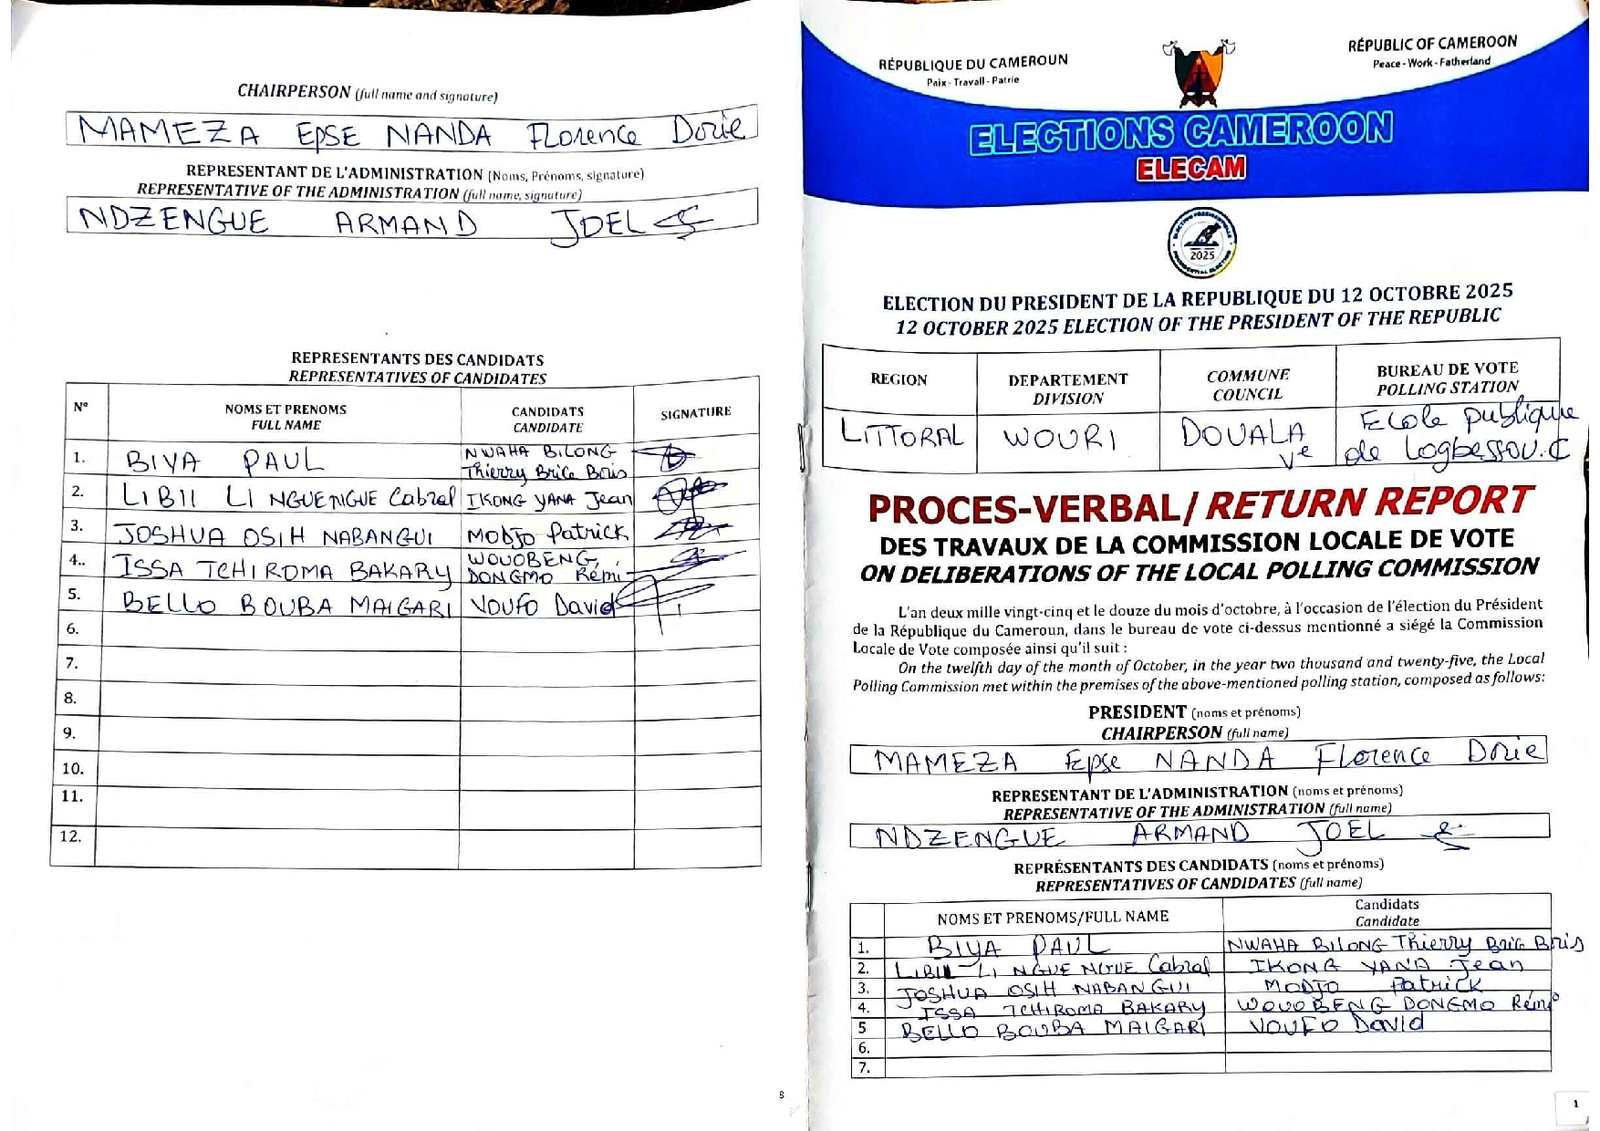 CHAIRPERSON (full name and signature)
MAMEZA Epse NANDA Florence Dorie
REPRESENTANT DE L'ADMINISTRATION (Noms, Prénoms, signature)
REPRESENTATIVE OF THE ADMINISTRATION (full name, signature)
NDZENGUE ARMAND JOEL
REPRESENTANTS DES CANDIDATS
REPRESENTATIVES OF CANDIDATES
N° NOMS ET PRENOMS FULL NAME CANDIDATS CANDIDATE SIGNATURE
1. BIYA PAUL NWAHA BILONG Thierry Brice Boris
2. LIBII LI NGUE NGUE Cabral IKONG YANA Jean
3. JOSHUA OSIH NABANGUI MODJO Patrick
4.. ISSA TCHIROMA BAKARY WOUOBENG DONGMO Rémi
5. BELLO BOUBA MAIGARI VOUFO David
6.
7.
8.
9.
10.
11.
12.
8
RÉPUBLIQUE DU CAMEROUN
Paix - Travail - Patrie
RÉPUBLIC OF CAMEROON
Peace - Work - Fatherland
ELECTIONS CAMEROON
ELECAM
ELECTION PRESIDENTIELLE
2025
PRESIDENTIAL ELECTION
ELECTION DU PRESIDENT DE LA REPUBLIQUE DU 12 OCTOBRE 2025
12 OCTOBER 2025 ELECTION OF THE PRESIDENT OF THE REPUBLIC
REGION DEPARTEMENT DIVISION COMMUNE COUNCIL BUREAU DE VOTE POLLING STATION
LITTORAL WOURI DOUALA Ve Ecole publique de Logbessou.C
PROCES-VERBAL/RETURN REPORT
DES TRAVAUX DE LA COMMISSION LOCALE DE VOTE
ON DELIBERATIONS OF THE LOCAL POLLING COMMISSION
L'an deux mille vingt-cinq et le douze du mois d'octobre, à l'occasion de l'élection du Président
de la République du Cameroun, dans le bureau de vote ci-dessus mentionné a siégé la Commission
Locale de Vote composée ainsi qu'il suit :
On the twelfth day of the month of October, in the year two thousand and twenty-five, the Local
Polling Commission met within the premises of the above-mentioned polling station, composed as follows:
PRESIDENT (noms et prénoms)
CHAIRPERSON (full name)
MAMEZA Epse NANDA Florence Dorie
REPRESENTANT DE L'ADMINISTRATION (noms et prénoms)
REPRESENTATIVE OF THE ADMINISTRATION (full name)
NDZENGUE ARMAND JOEL
REPRÉSENTANTS DES CANDIDATS (noms et prénoms)
REPRESENTATIVES OF CANDIDATES (full name)
NOMS ET PRENOMS/FULL NAME Candidats Candidate
1. BIYA PAUL NWAHA BILONG Thierry Brice Boris
2. LIBII LI NGUE NGUE Cabral IKONG YANA Jean
3. JOSHUA OSIH NABANGUI MODJO Patrick
4. ISSA TCHIROMA BAKARY WOUOBENG DONGMO Rémi
5 BELLO BOUBA MAIGARI VOUFO David
6.
7.
1